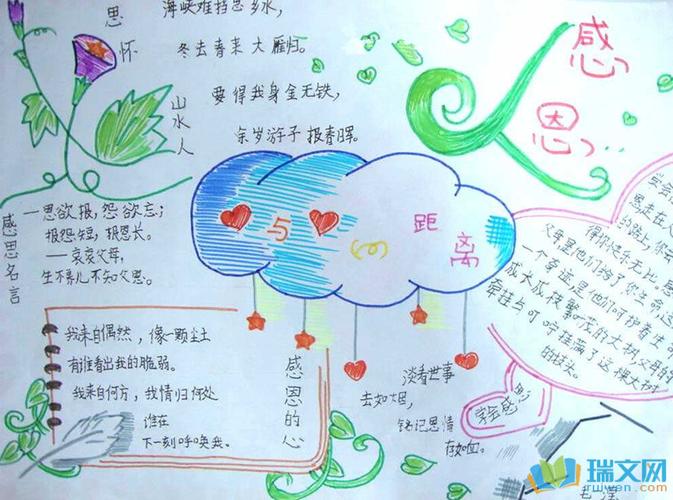 海峡难挡思乡水,
冬去春来大雁归。
要得我身金无铁,
余岁游子报春晖。
思怀
山水人
感恩
感恩名言
一恩欲报,怨欲忘;
报怨短,报恩长。
——哀哀父母,
生不养儿不知父恩。
与
的
距离
我来自偶然,像一颗尘土
有谁看出我的脆弱。
我来自何方,我情归何处
谁在
下一刻呼唤我。
感恩的心
淡看世事
去如烟
铭记恩情
存如血。
学会感恩
恩走在人
的路上,你会
父母是他们给了你生命,这
一个奇迹,是他们呵护着生
成长成枝繁叶茂的大树,父母的
牵挂与叮咛挂满了这棵大树
的枝头。
瑞文网
ruiwen.com